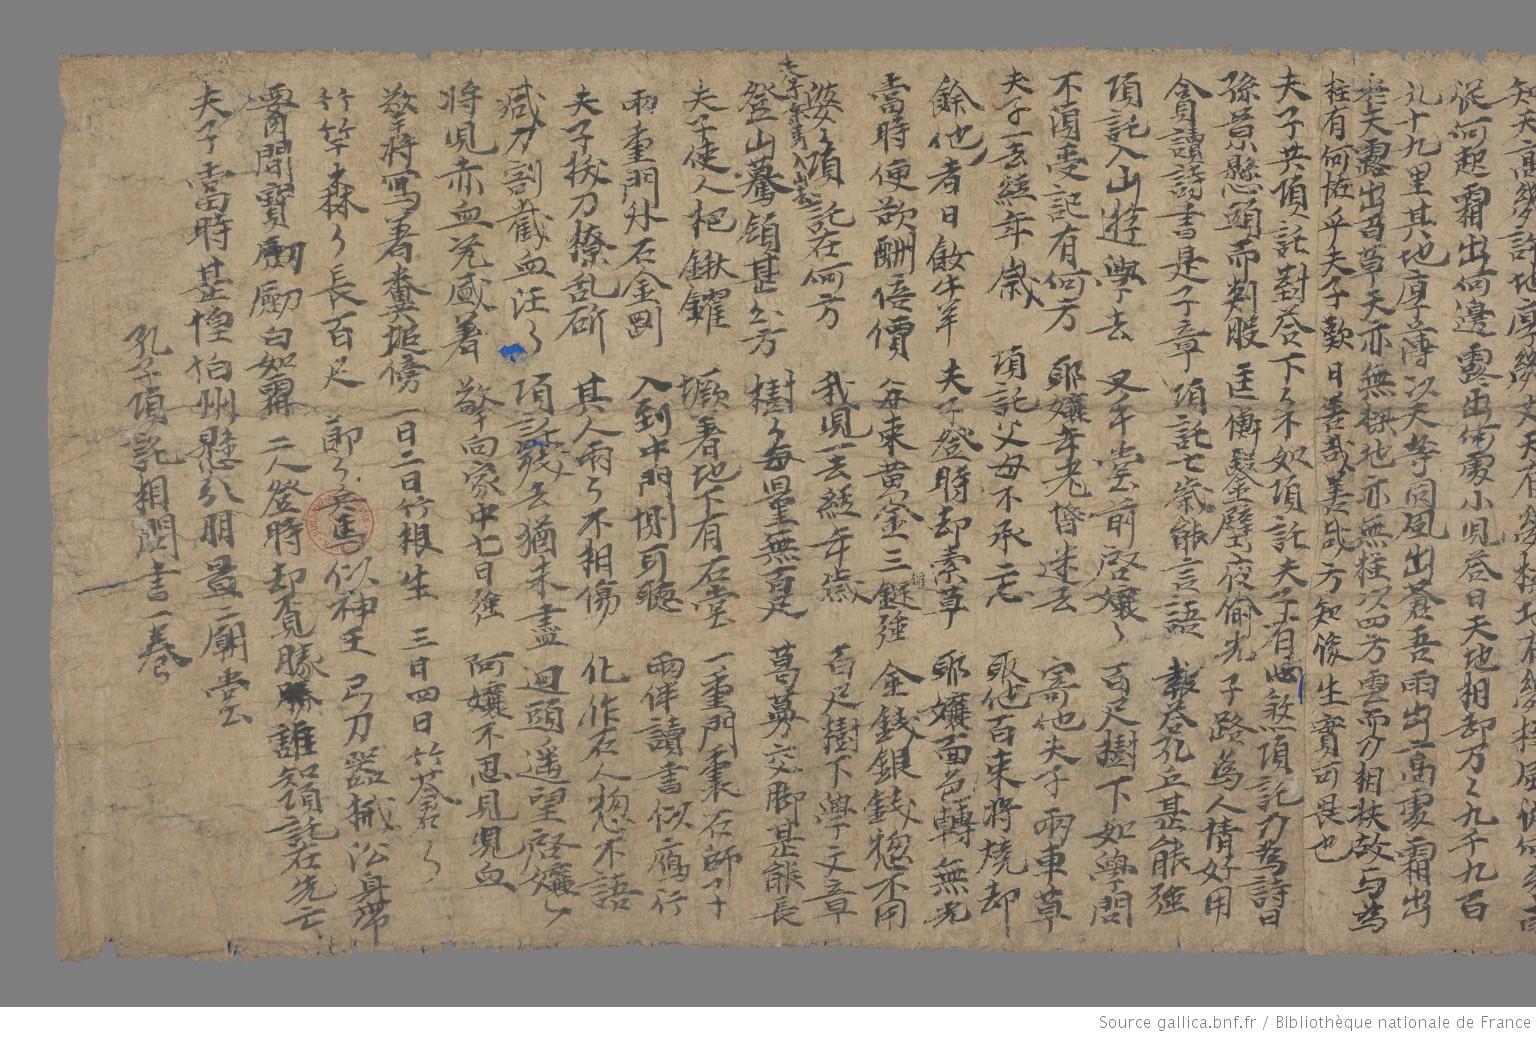 泥何起霜出何邊露出何處小児答曰天地相却万〻九千九百
九十九里其地厚薄以天等同風出蒼吾雨出高處霜出
於天露出百草天亦無樑地亦無柱以四方雲而乃相扶故与為
柱有何恠乎夫子歎曰善哉善哉方知後生實可畏也
夫子共項託對答下〻不如項託夫子有心煞項託乃為詩曰
孫景懸頭而刺股 匡衡鑿壁夜偷光 子路為人情好用
貪讀詩書是子章 項託七歲能言語 報答孔丘甚能強
項託入山遊學去 叉手堂前啓孃〻 百尺樹下如學問
不須受記有何方 耶孃年老惛迷去 寄他夫子兩車草
夫子一去經年歲 項託父母不承忘 取他百束將燒却
餘他者曰餧牛羊 夫子登時却索草 耶孃面色轉無光
當時便欲酬倍價 每束黃金三鋌強 金錢銀錢惣不用
婆〻項託在何方 我児一去經年歲 百尺樹下學文章
夫子乘馬入山去
登山驀領甚公方 樹〻每量無百尺 葛蔓交脚甚能長
夫子使人把鍬钁 撅着地下有石堂 一重門裏石師子
兩重門外石金剛 入到中門惻耳聴 兩伴讀書似鴈行
夫子拔刀撩乱斫 其人兩〻不相傷 化作石人惣不語
鐵刀割截血汪〻 項託殘去猶未盡 迴頭遥望啓孃〻
將児赤血瓮盛着 擎向家中七日強 阿孃不忍見児血
擎將寫着糞堆傍 一日二日竹根生 三日四日竹蒼〻
竹竿森〻長百尺 節〻兵馬似神王 弓刀器械沿身帶
腰間寶劒白如霜 二人登時却覓勝 誰知項託在先亡
夫子當時甚惶怕 州懸分明置廟堂
孔子項託相問書一卷
Source gallica.bnf.fr / Bibliothèque nationale de France